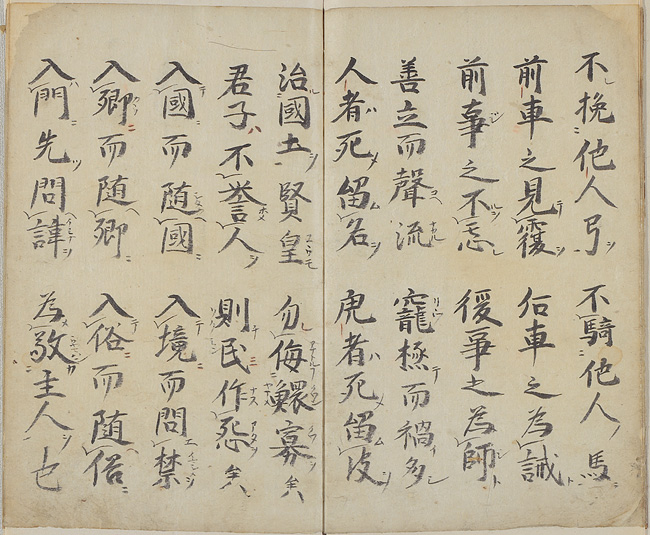 不挽他人弓 不騎他人馬
前車之見覆 后車之為誡
前事之不忘 後事之為師
善立而聲流 寵極而禍多
人者死留名 虎者死留皮
治國土賢皇 勿侮鰥寡矣
君子不誉人 則民作怨矣
入國而随國 入境而問禁
入郷而随郷 入俗而随俗
入門先問諱 為敬主人也